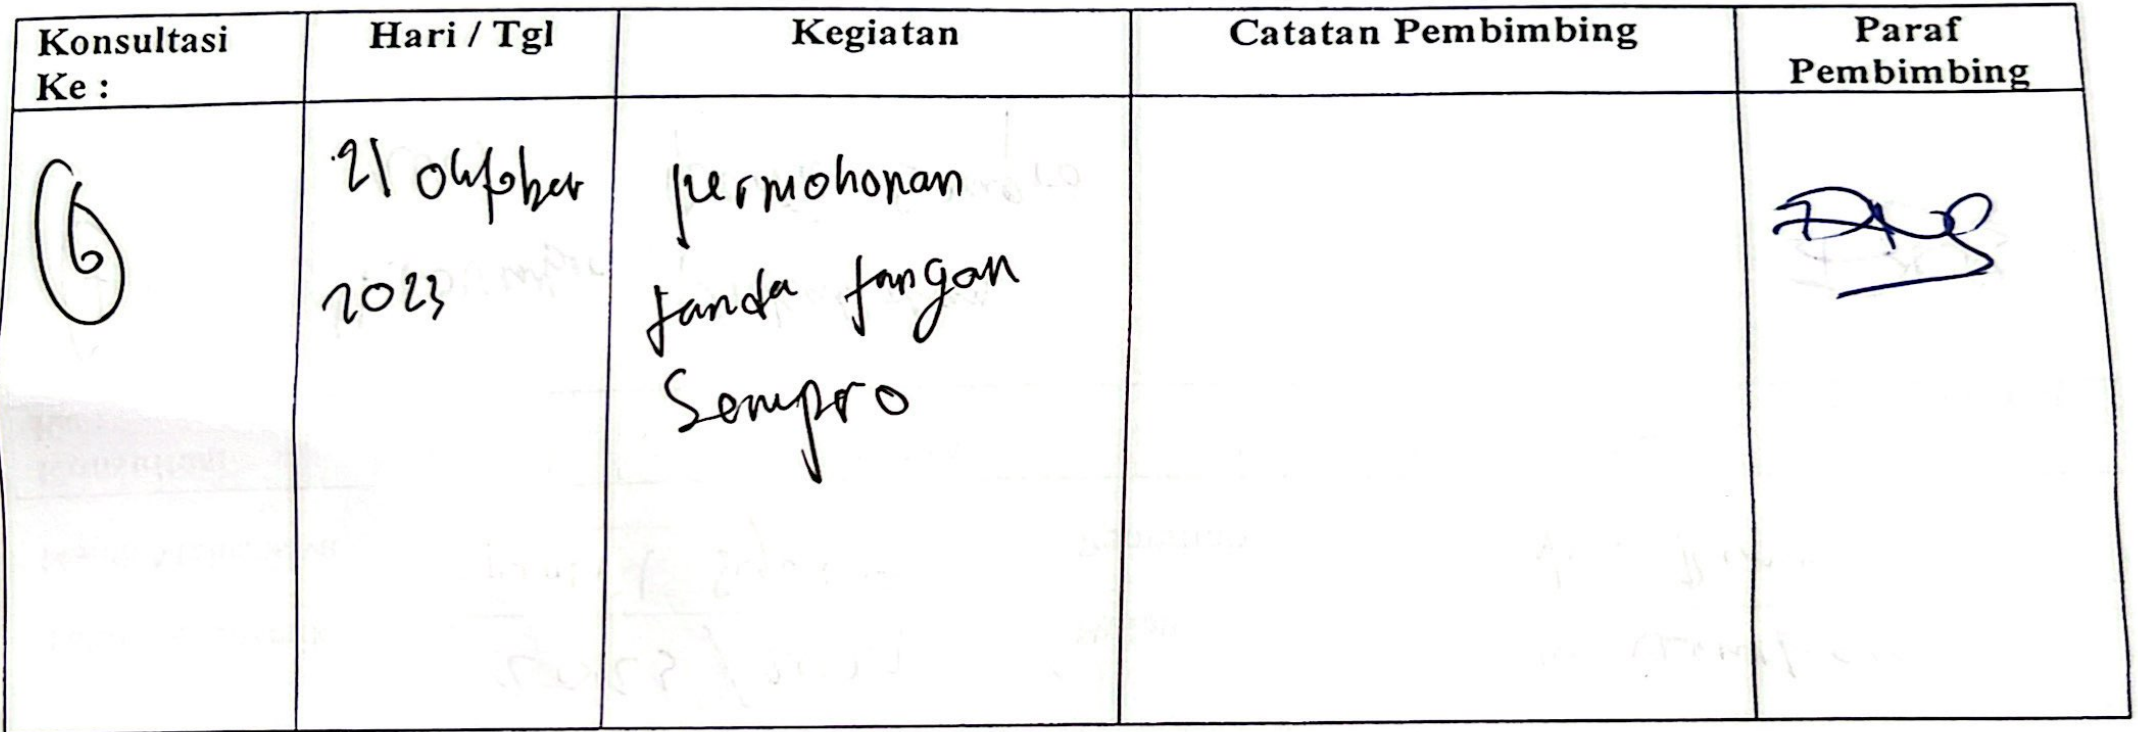 Konsultasi Ke :
Hari / Tgl
Kegiatan
Catatan Pembimbing
Paraf Pembimbing
6
21 Oktober
2023
permohonan
tanda tangan
Sempro